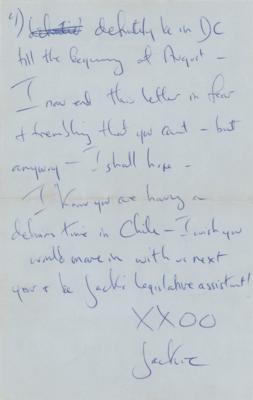 4) definitely be in DC
till the beginning of August -
I now end this letter in fear
& trembling that you can't - but
anyway - I shall hope -
I know you are having a
time in Chile - I wish you
would move in with us next
year & be Jack's legislative assistant!
XXOO
Jackie